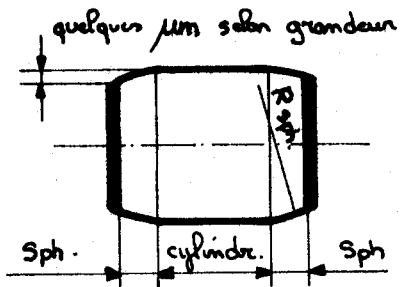 quelques µm selon grandeur
R sph.
Sph. cylindr. Sph